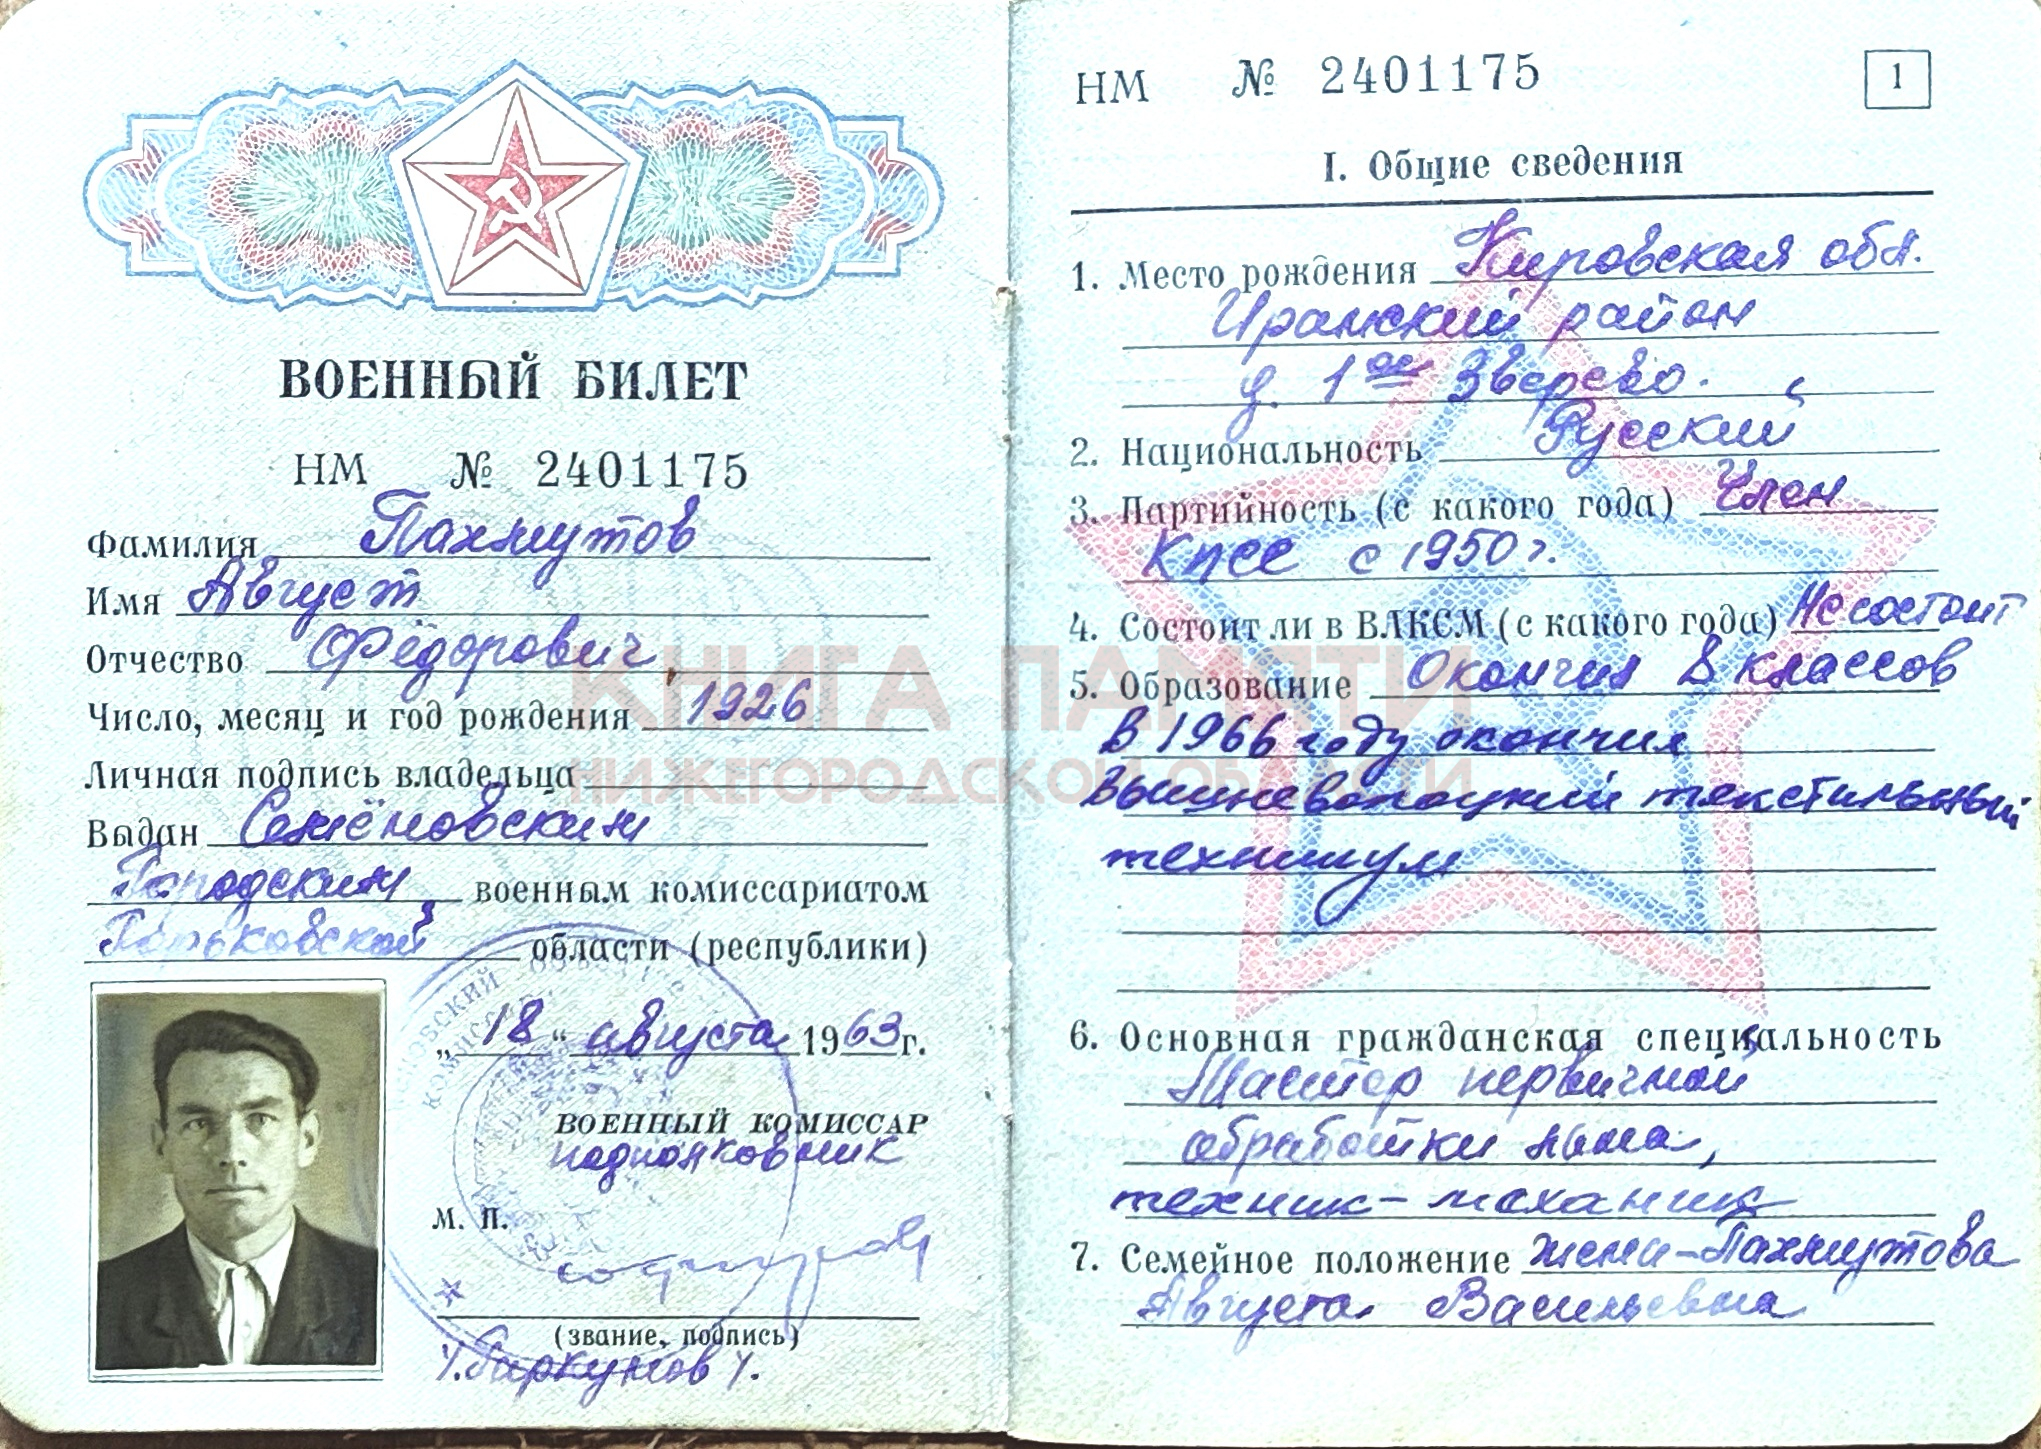 ВОЕННЫЙ БИЛЕТ
НМ № 2401175
Фамилия Пахмутов
Имя Август
Отчество Фёдорович
Число, месяц и год рождения 1926
Личная подпись владельца
Выдан Семёновским
Городским военным комиссариатом
Горьковской области (республики)
„18“ августа 1963 г.
ВОЕННЫЙ КОМИССАР
подполковник
М. П.
(звание, подпись)
НМ № 2401175
1
I. Общие сведения
1. Место рождения Кировская обл.
Уранский район
д. 1ое Зверево.
2. Национальность Русский
3. Партийность (с какого года) Член
КПСС с 1950 г.
4. Состоит ли в ВЛКСМ (с какого года) Не состоит
5. Образование Окончил 8 классов
В 1966 году окончил
Вышневолоцкий текстильный
техникум
6. Основная гражданская специальность
Мастер первичной
обработки льна,
техник-механик
7. Семейное положение жена - Пахмутова
Августа Васильевна
КНИГА ПАМЯТИ
НИЖЕГОРОДСКОЙ ОБЛАСТИ